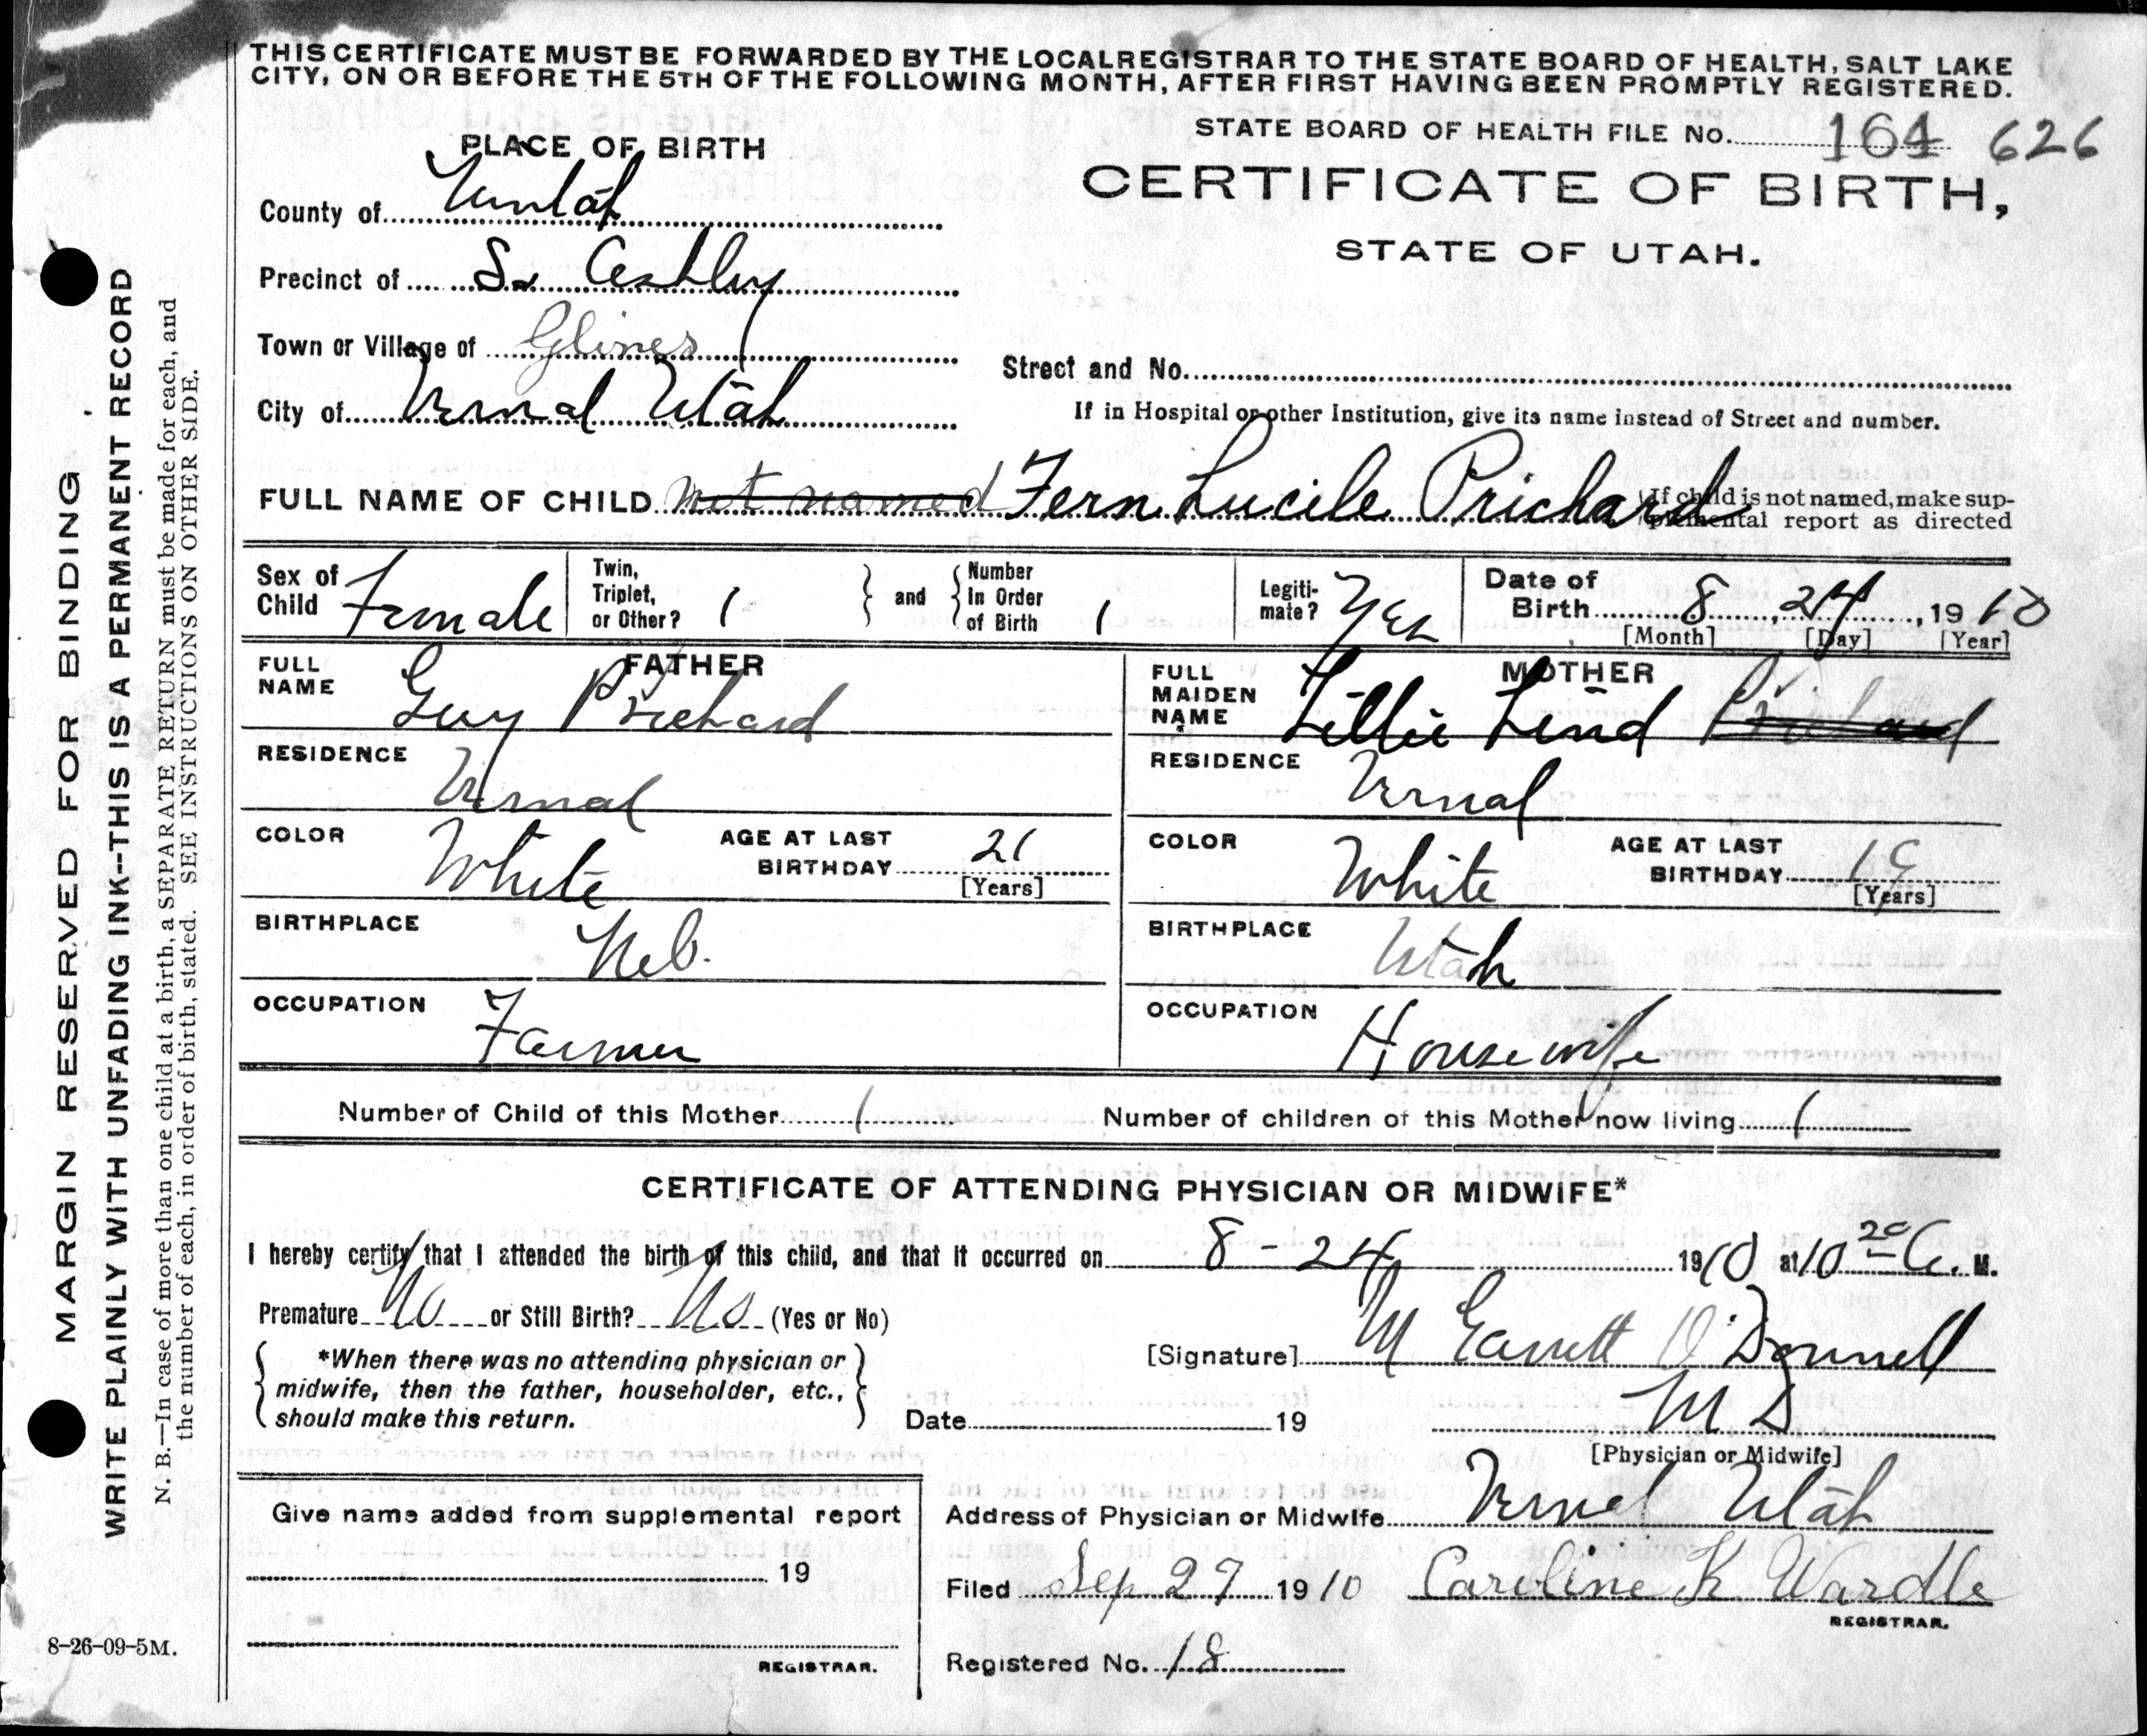 THIS CERTIFICATE MUST BE FORWARDED BY THE LOCAL REGISTRAR TO THE STATE BOARD OF HEALTH, SALT LAKE
CITY, ON OR BEFORE THE 5TH OF THE FOLLOWING MONTH, AFTER FIRST HAVING BEEN PROMPTLY REGISTERED.
STATE BOARD OF HEALTH FILE No. 164 626
PLACE OF BIRTH
CERTIFICATE OF BIRTH,
STATE OF UTAH.
County of Uintah
Precinct of So Ashley
Town or Village of Glines
Street and No.
City of Vernal Utah
If in Hospital or other Institution, give its name instead of Street and number.
FULL NAME OF CHILD not named Fern Lucile Prichard
If child is not named, make sup-
plemental report as directed
Sex of Child Female
Twin, Triplet, or Other? 1 and Number In Order of Birth 1
Legiti-mate? Yes
Date of Birth 8, 24, 1910
[Month] [Day] [Year]
FATHER
FULL NAME Guy Prichard
MOTHER
FULL MAIDEN NAME Lillie Lind Prichard
RESIDENCE Vernal
RESIDENCE Vernal
COLOR White AGE AT LAST BIRTHDAY 21 [Years]
COLOR White AGE AT LAST BIRTHDAY 19 [Years]
BIRTHPLACE Neb.
BIRTHPLACE Utah
OCCUPATION Farmer
OCCUPATION Housewife
Number of Child of this Mother 1 Number of children of this Mother now living 1
CERTIFICATE OF ATTENDING PHYSICIAN OR MIDWIFE*
I hereby certify that I attended the birth of this child, and that it occurred on 8-24 1910 at 10 20 A. M.
Premature No or Still Birth? No (Yes or No)
*When there was no attending physician or
midwife, then the father, householder, etc.,
should make this return.
[Signature] M Garrett O'Donnell
Date 19 M D
[Physician or Midwife]
Give name added from supplemental report
19
REGISTRAR.
Address of Physician or Midwife Vernal Utah
Filed Sep 27 1910 Caroline K Wardle
REGISTRAR.
Registered No. 18
MARGIN RESERVED FOR BINDING
WRITE PLAINLY WITH UNFADING INK--THIS IS A PERMANENT RECORD
N. B.—In case of more than one child at a birth, a SEPARATE RETURN must be made for each, and
the number of each, in order of birth, stated. SEE INSTRUCTIONS ON OTHER SIDE.
8-26-09-5M.